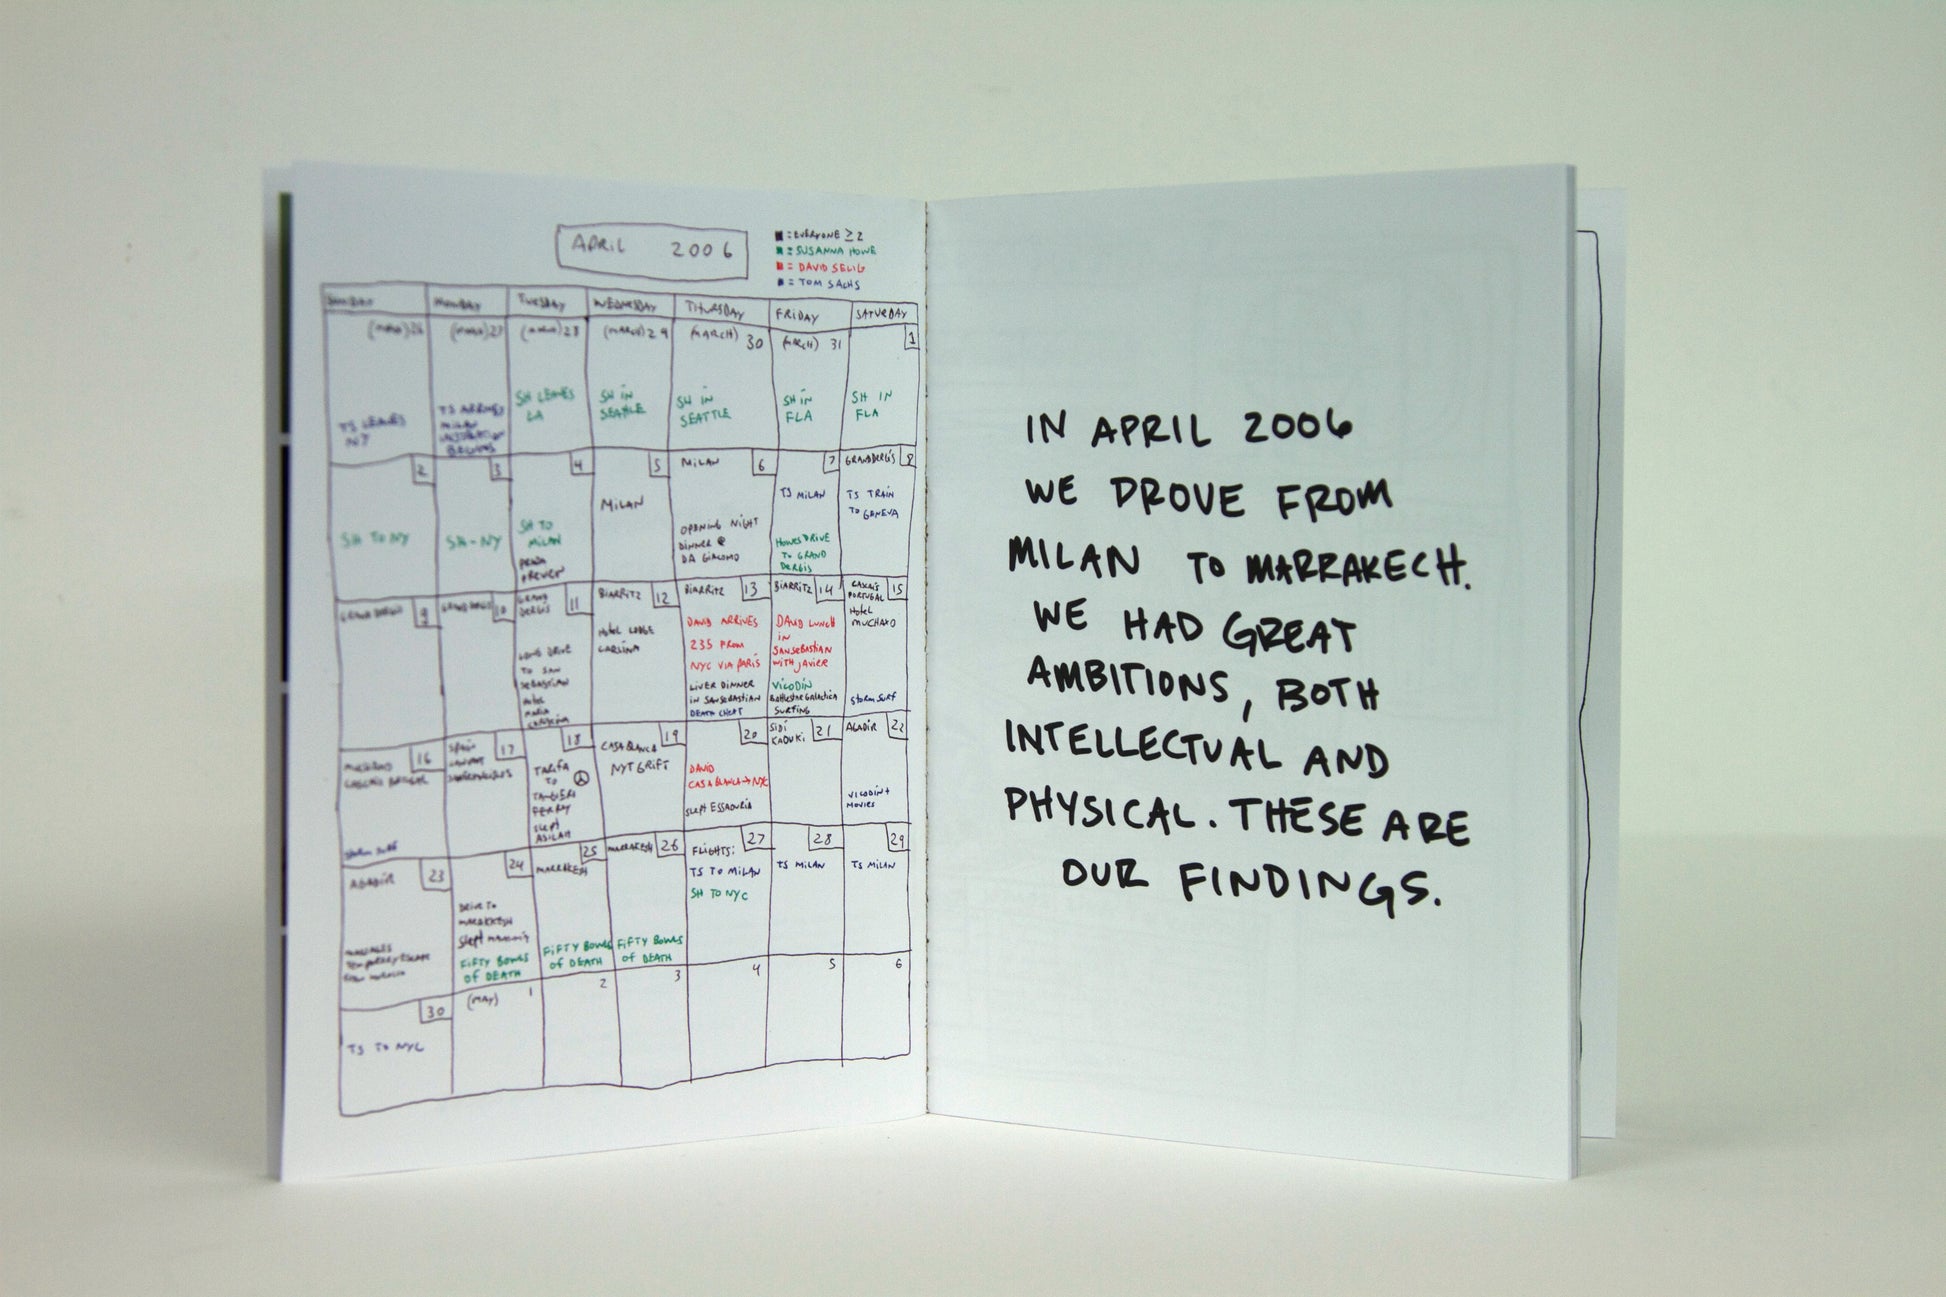 APRIL 2006
■ = EVERYONE ≥ 2
■ = SUSANNA HOWE
■ = DAVID SELIG
■ = TOM SACHS
SUNDAY MONDAY TUESDAY WEDNESDAY THURSDAY FRIDAY SATURDAY
(MARCH) 26
TS LEAVES
NY
(MARCH) 27
TS ARRIVES
MILAN
INSTALLATION
BEGINS
(MARCH) 28
SH LEAVES
LA
(MARCH) 29
SH IN
SEATTLE
(MARCH) 30
SH IN
SEATTLE
(MARCH) 31
SH IN
FLA
1
SH IN
FLA
2
SH TO NY
3
SH - NY
4
SH TO
MILAN
PRADA
5
MILAN
MILAN 6
OPENING NIGHT
DINNER @
DA GIACOMO
7
TS MILAN
HOWES DRIVE
TO GRAND
DERGIS
GRANDDERGIS 8
TS TRAIN
TO GENEVA
GRAND DERGIS 9
GRAND DERGIS 10
GRAND
DERGIS 11
LONG DRIVE
TO SAN
SEBASTIAN
HOTEL
MARIA
CRISTINA
BIARRITZ 12
HOTEL LODGE
BIARRITZ 13
DAVID ARRIVES
235 FROM
NYC VIA PARIS
LIVER DINNER
IN SANSEBASTIAN
DEATH CHEAT
BIARRITZ 14
DAVID LUNCH
IN
SANSEBASTIAN
WITH JAVIER
VICODIN
BATTLESTAR GALACTICA
SURFING
CASCAIS
PORTUGAL 15
HOTEL
MUCHAXO
STORM SURF
16
STORM SURF
SPAIN 17
18
TARIFA
TO
TANGIERS
FERRY
SLEPT
ASILAH
19
CASABLANCA
NYT GRIFT
20
DAVID
CASABLANCA → NYC
SLEPT ESSAOUIRA
SIDI
KAOUKI 21
AGADIR 22
VICODIN +
MOVIES
AGADIR 23
TEMPORARY ESCAPE
24
DRIVE TO
MARRAKESH
SLEPT
FIFTY BOWLS
OF DEATH
25
MARRAKESH
FIFTY BOWLS
OF DEATH
MARRAKESH 26
FIFTY BOWLS
OF DEATH
27
FLIGHTS:
TS TO MILAN
SH TO NYC
28
TS MILAN
29
TS MILAN
30
TS TO NYC
(MAY) 1
2
3
4
5
6
IN APRIL 2006
WE DROVE FROM
MILAN TO MARRAKECH.
WE HAD GREAT
AMBITIONS, BOTH
INTELLECTUAL AND
PHYSICAL. THESE ARE
OUR FINDINGS.